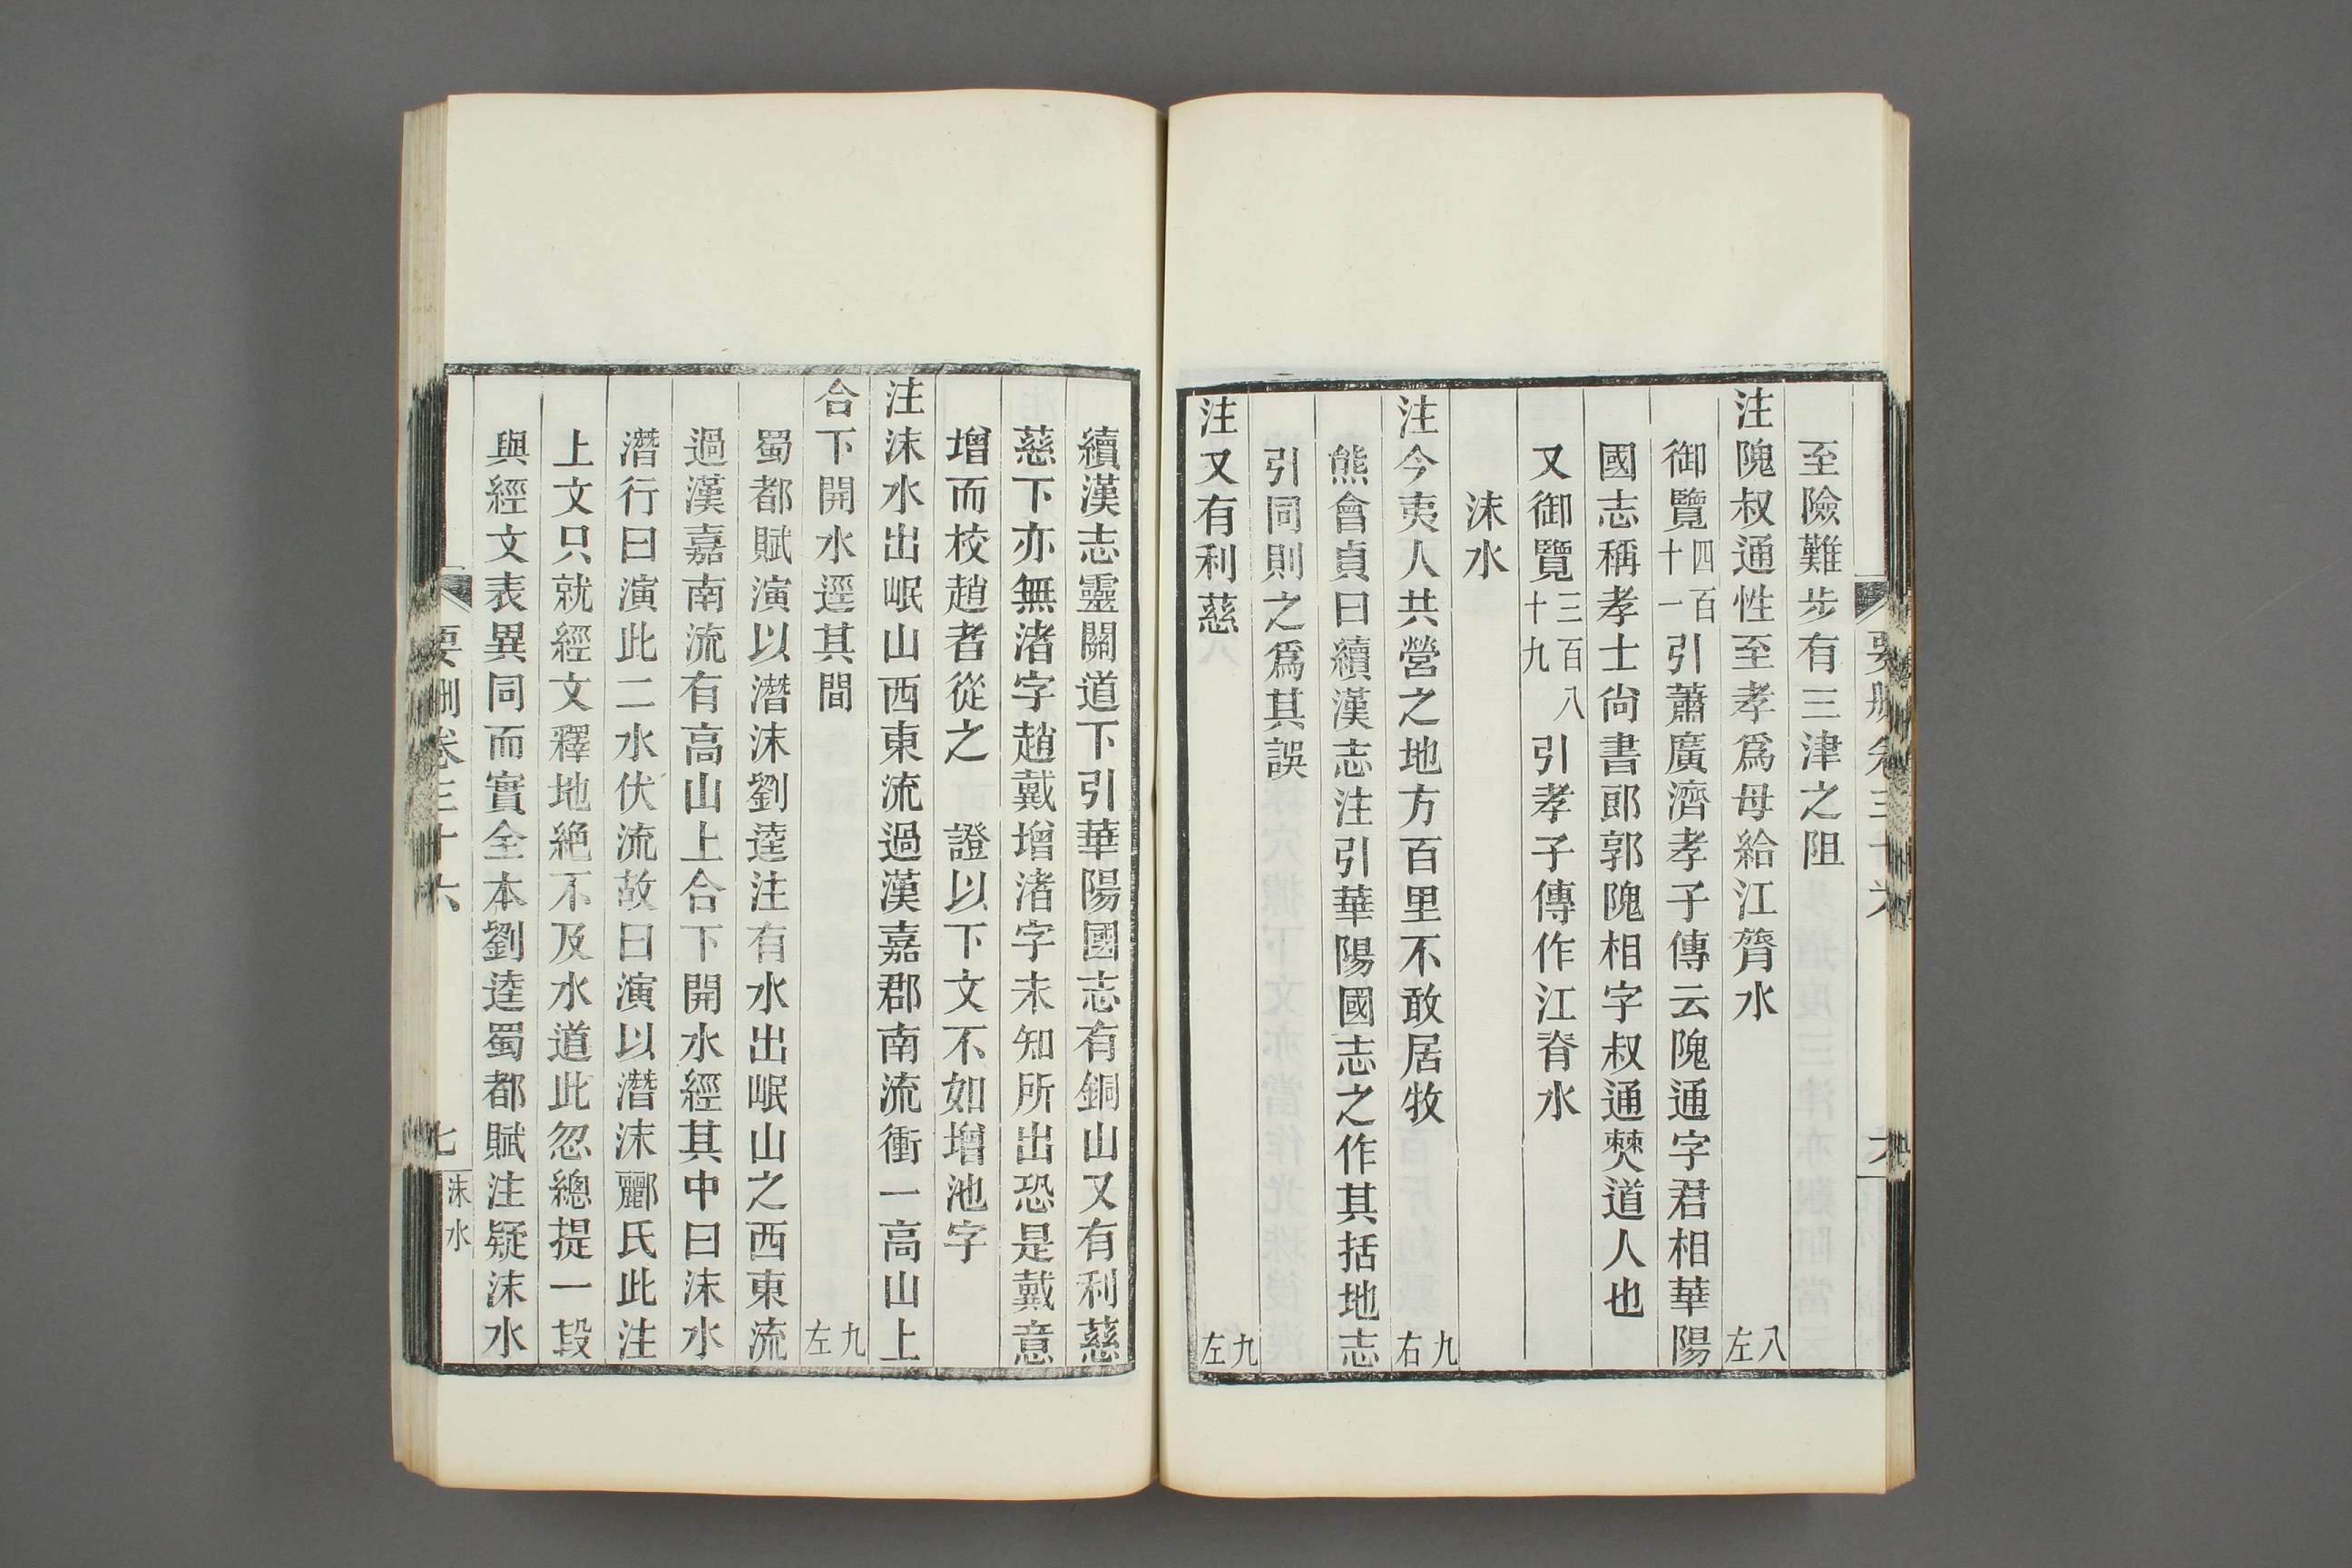 至險難步有三津之阻
注隗叔通性至孝爲母給江膂水 八左
御覽四百十一引蕭廣濟孝子傳云隗通字君相華陽
國志稱孝士尙書郎郭隗相字叔通僰道人也
又御覽三百八十九引孝子傳作江脊水
沫水
注今夷人共營之地方百里不敢居牧 九右
熊會貞曰續漢志注引華陽國志之作其括地志
引同則之爲其誤
注又有利慈 九左
續漢志靈關道下引華陽國志有銅山又有利慈
慈下亦無渚字趙戴增渚字未知所出恐是戴意
增而校趙者從之 證以下文不如增池字
注沫水出岷山西東流過漢嘉郡南流衝一高山上
合下開水逕其間 九左
蜀都賦演以潛沫劉逵注有水出岷山之西東流
過漢嘉南流有高山上合下開水經其中曰沫水
潛行曰演此二水伏流故曰演以潛沫酈氏此注
上文只就經文釋地絕不及水道此忽總提一段
與經文表異同而實全本劉逵蜀都賦注疑沫水
要刪卷三十六 七 沫水